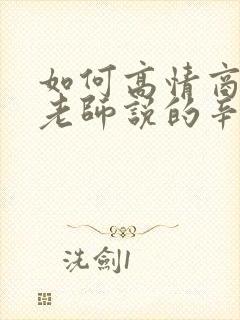 如何高情商
老師說的辛
洗劍1